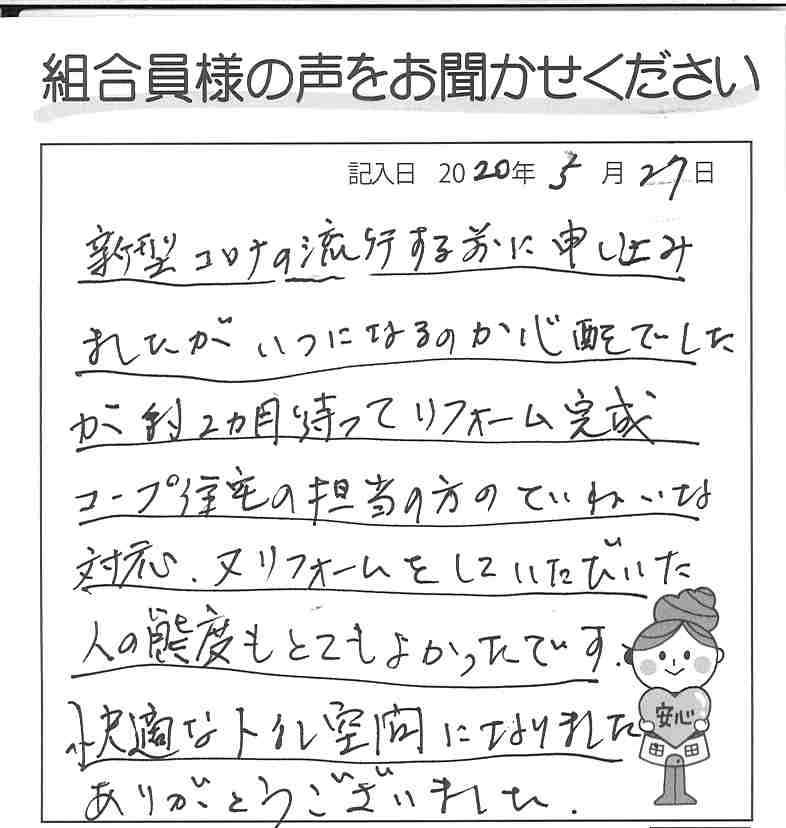 組合員様の声をお聞かせください
記入日 2020年 5月 27日
新型コロナの流行する前に申し込み
ましたが いつになるのか心配でした
が 約2カ月待ってリフォーム完成
コープ住宅の担当の方のていねいな
対応、又リフォームをしていただいた
人の態度もとてもよかったです.
快適なトイレ空間になりました
ありがとうございました.
安心